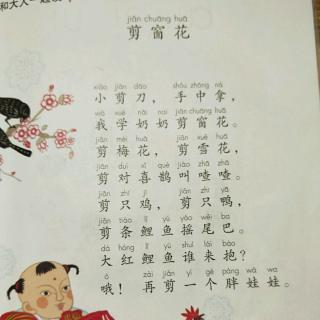 和大人一起读
jiǎn chuāng huā
剪窗花
xiǎo jiǎn dāo shǒu zhōng ná
小剪刀，手中拿，
wǒ xué nǎi nai jiǎn chuāng huā
我学奶奶剪窗花。
jiǎn méi huā jiǎn xuě huā
剪梅花，剪雪花，
jiǎn duì xǐ què jiào zhā zhā
剪对喜鹊叫喳喳。
jiǎn zhī jī jiǎn zhī yā
剪只鸡，剪只鸭，
jiǎn tiáo lǐ yú yáo wěi ba
剪条鲤鱼摇尾巴。
dà hóng lǐ yú shuí lái bào
大红鲤鱼谁来抱？
ò zài jiǎn yí gè pàng wá wa
哦！再剪一个胖娃娃。